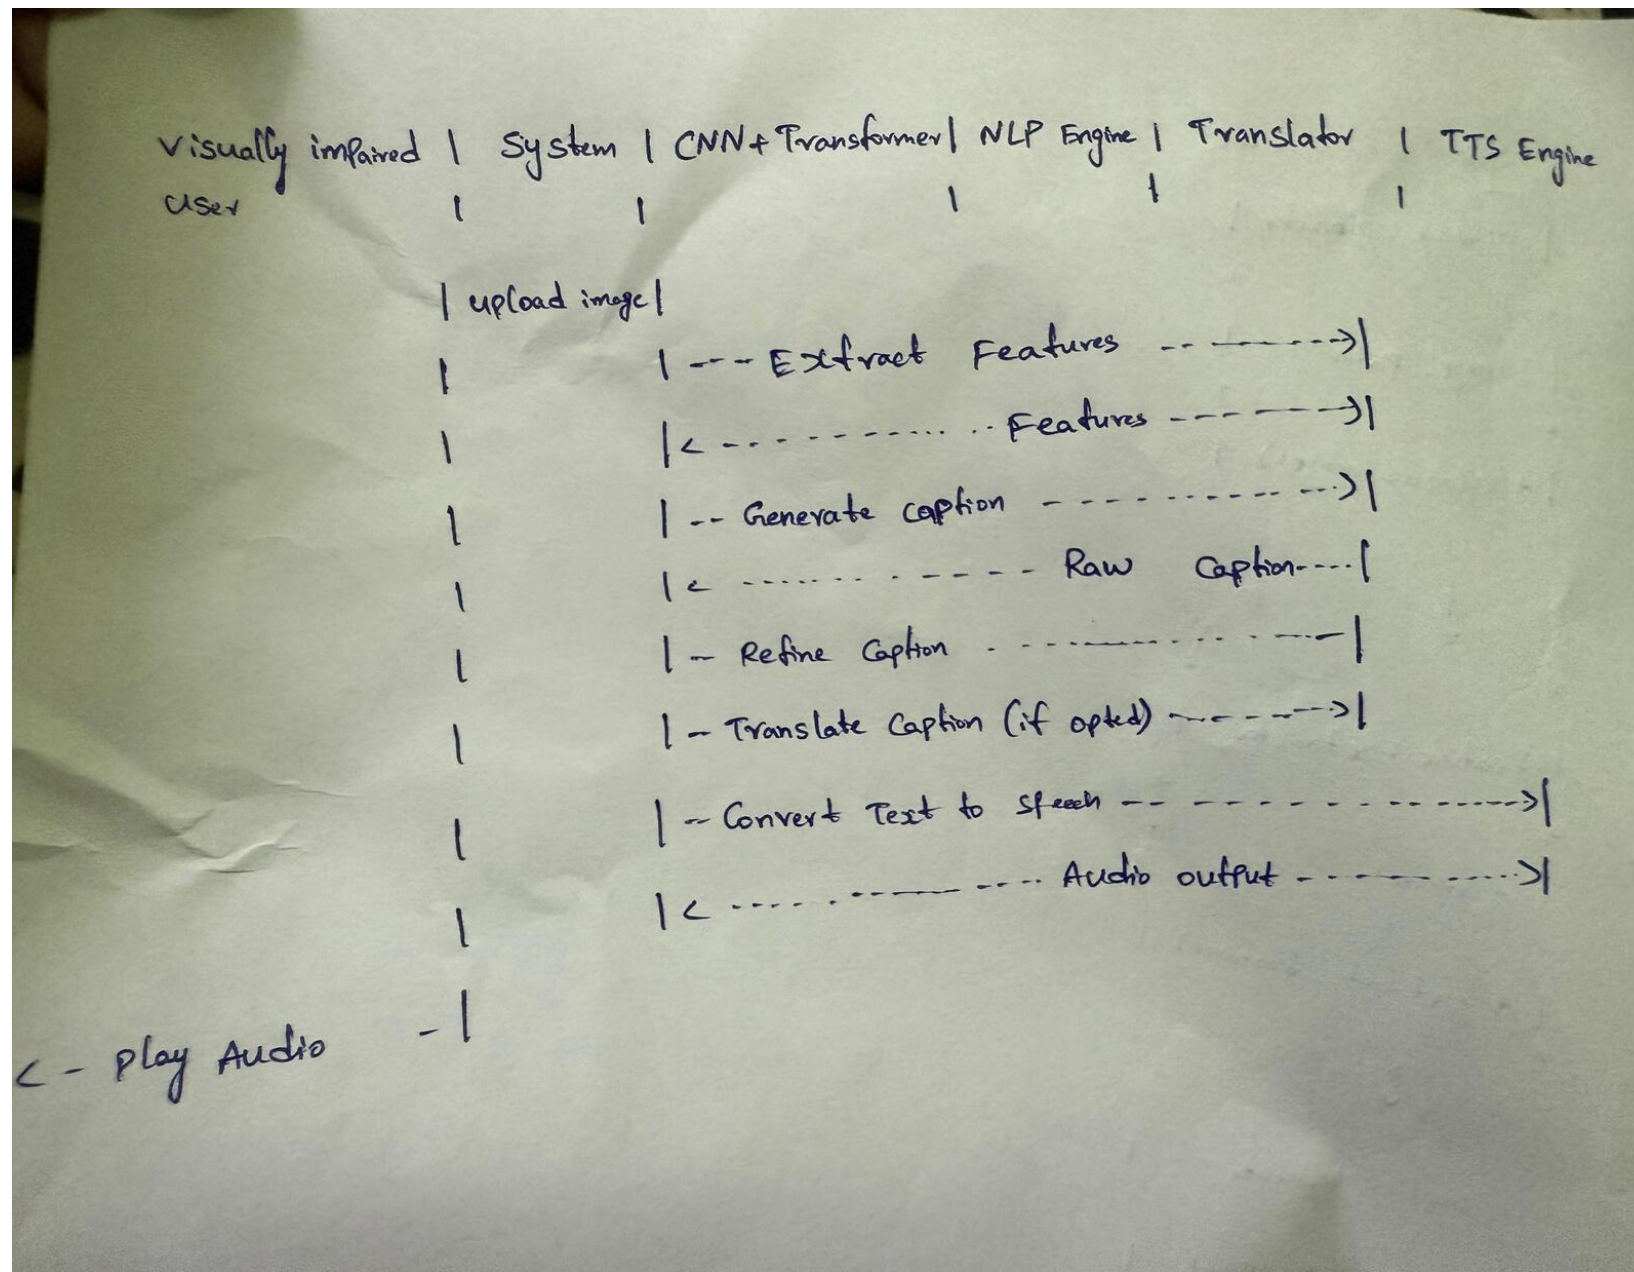 Visually impaired | System | CNN+ Transformer | NLP Engine | Translator | TTS Engine
User | | | | |
| upload image |
| --- Extract Features -------->|
|<----------- Features ------->|
|-- Generate caption ---------->|
|<----------- Raw Caption----|
|- Refine Caption -----------|
|- Translate Caption (if opted) ------->|
|-- Convert Text to speech ------------->|
|<------------- Audio output ---------->|
<- Play Audio -|